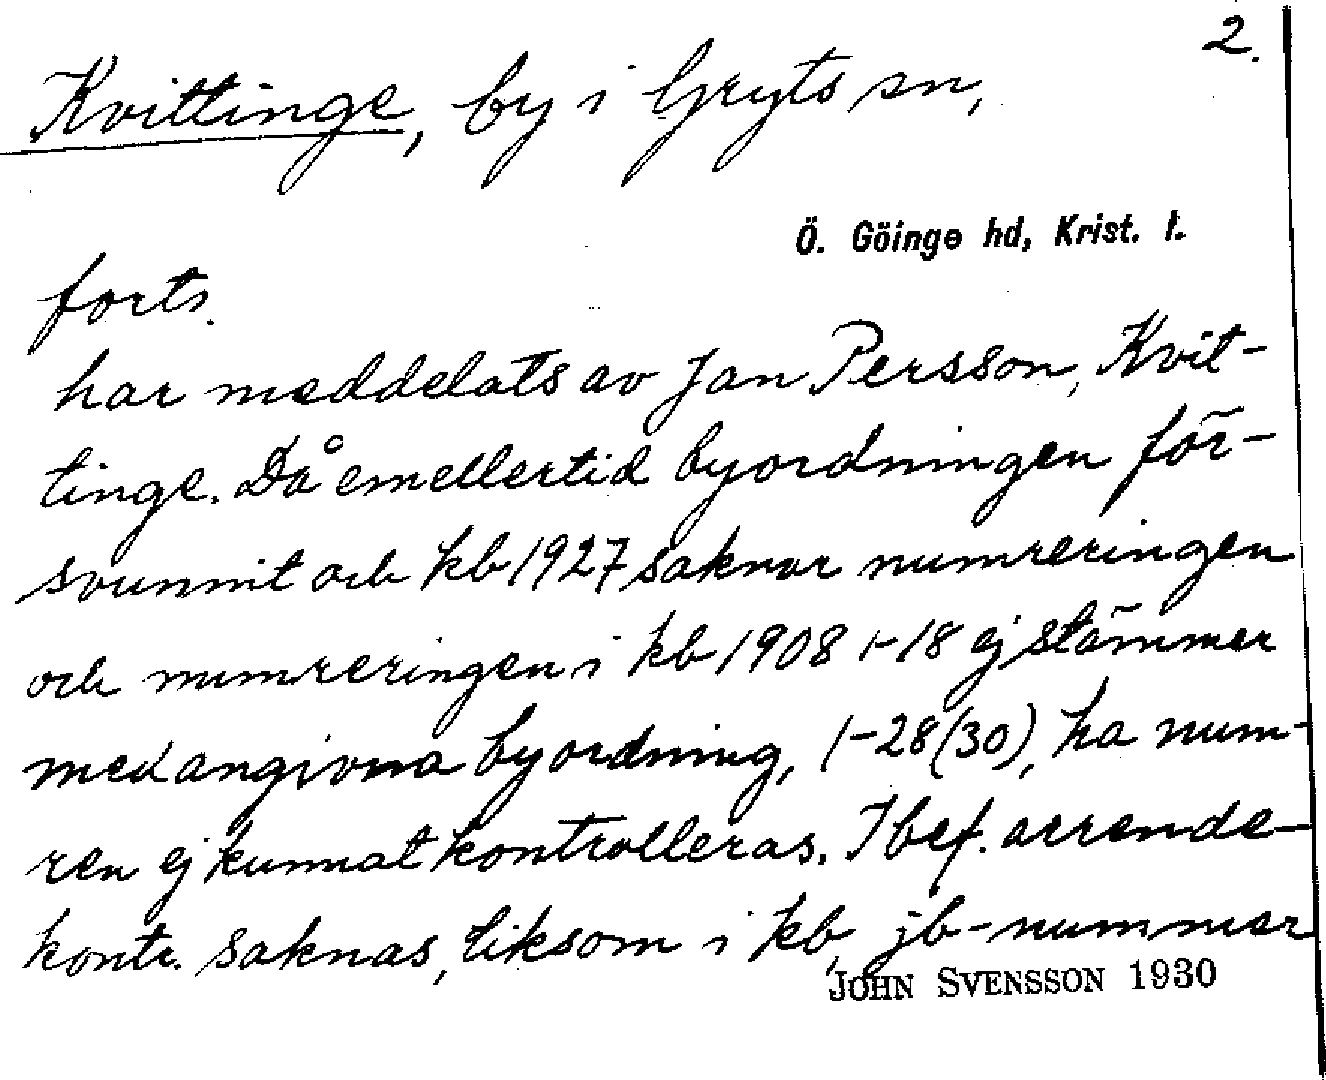 2.
Kvittinge, by i Gryts sn,
Ö. Göinge hd, Krist. l.
forts.
har meddelats av Jan Persson, Kvit-
tinge. Då emellertid byordningen för-
svunnit och kb 1927 saknar numreringen
och numreringen i kb 1908 1-18 ej stämmer
med angivna byordning, 1-28 (30), ha num-
ren ej kunnat kontrolleras. I bef. arrende-
kontr. saknas, liksom i kb, jb-nummer
JOHN SVENSSON 1930